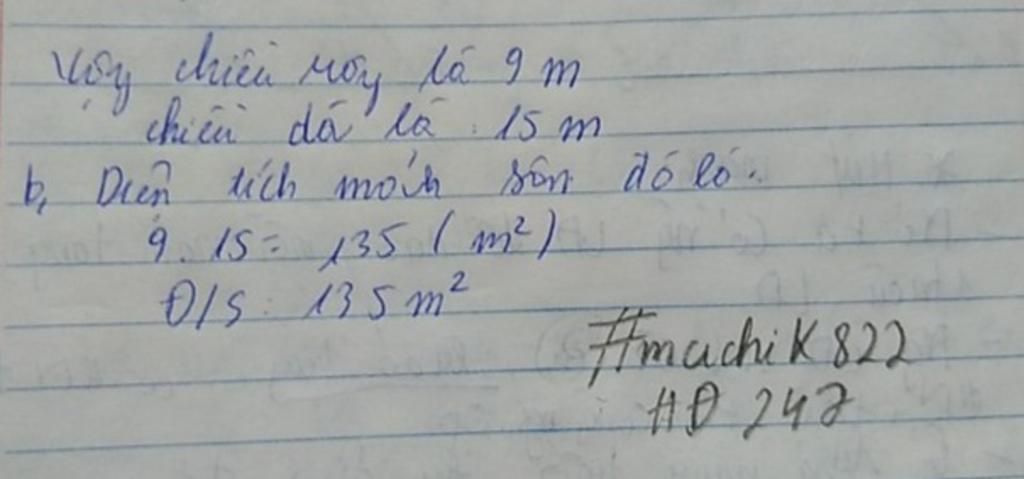 Vậy chiều rộng là 9 m
chiều dà là 15 m
b, Diện tích mảnh sân đó là.
9. 15 = 135 (m²)
Đ/S: 135 m²
#machiK822
HĐ 247